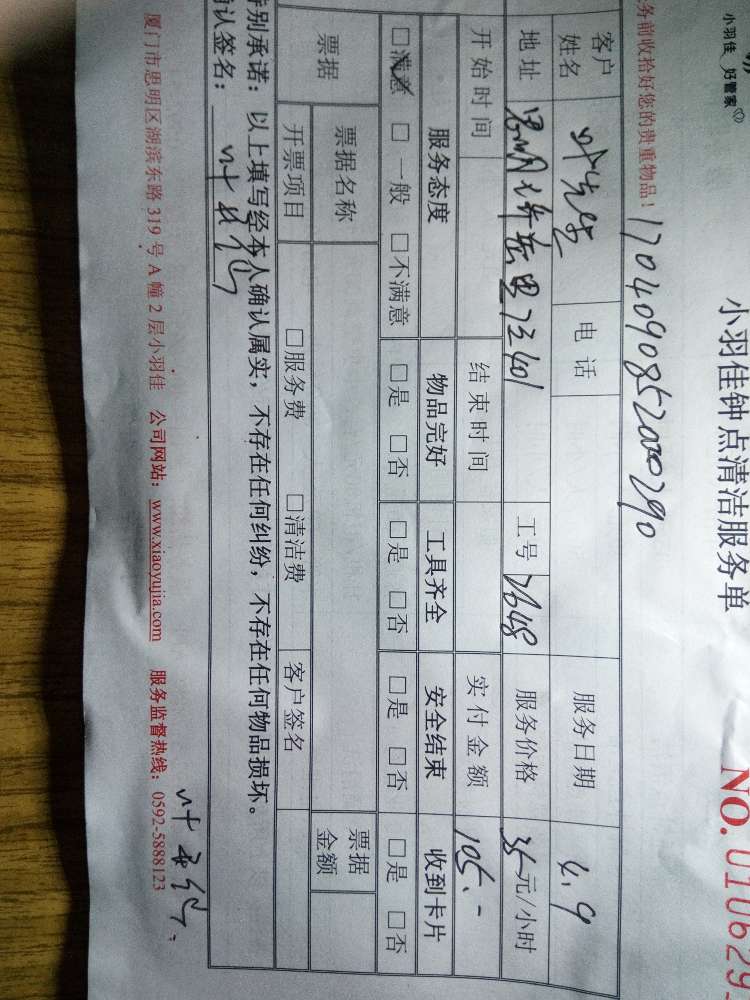 小羽佳 好管家
小羽佳钟点清洁服务单
NO.
务前收拾好您的贵重物品！ 17040908520000290
客户姓名 叶先生 电话 服务日期 4.9
地址 工号 服务价格 35元/小时
开始时间 结束时间 实付金额 105.-
服务态度 物品完好 工具齐全 安全结束 收到卡片
□满意 □一般 □不满意 □是 □否 □是 □否 □是 □否 □是 □否
票据 票据名称 票据金额
开票项目 □服务费 □清洁费 客户签名
特别承诺：以上填写经本人确认属实，不存在任何纠纷，不存在任何物品损坏。
确认签名：
厦门市思明区湖滨东路 319 号 A 幢 2 层小羽佳 公司网站：www.xiaoyujia.com 服务监督热线：0592-5888123